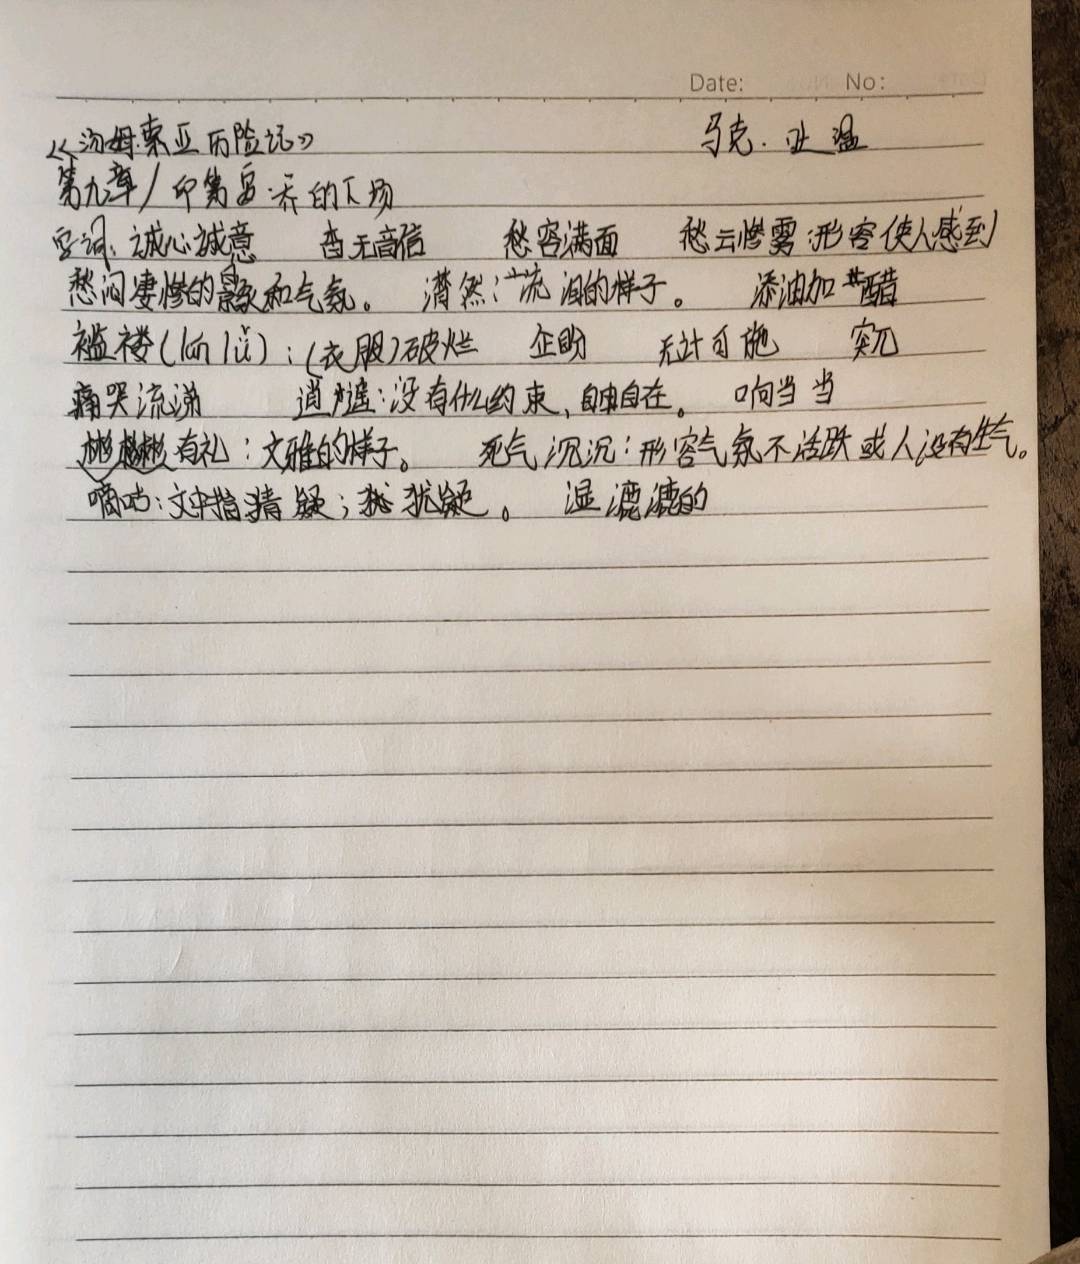 Date: No:
《汤姆·索亚历险记》 马克·吐温
第九章/印第安·乔的下场
字词: 诚心诚意 杳无音信 愁容满面 愁云惨雾:形容使人感到
愁闷凄惨的景象和气氛。 潸然:流泪的样子。 添油加醋
褴褛(lán lǚ):(衣服)破烂 企盼 无计可施 突兀
痛哭流涕 逍遥:没有什么约束,自由自在。 响当当
彬彬有礼:文雅的样子。 死气沉沉:形容气氛不活跃或人没有生气。
嘀咕:文中指猜疑;犹疑。 湿漉漉的